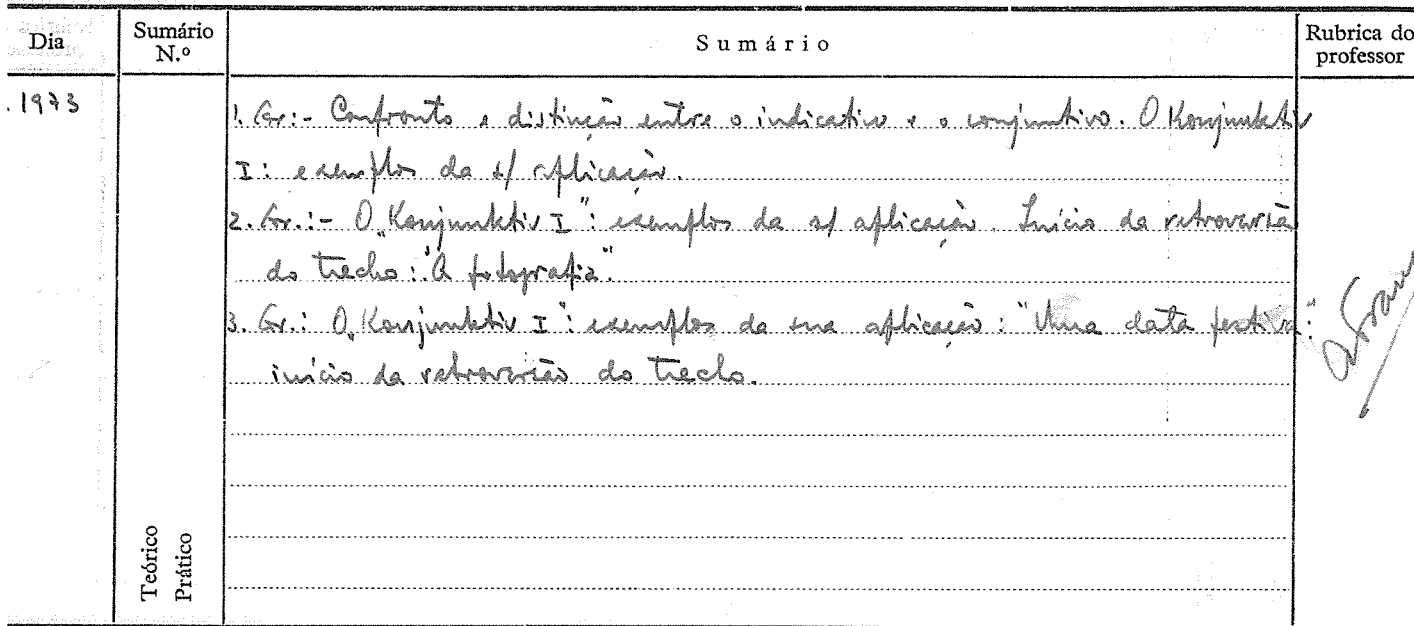 Dia
Sumário
N.º
Sumário
Rubrica do
professor
. 1973
1. Gr:- Confronto e distinção entre o indicativo e o conjuntivo. O Konjunktiv
I: exemplos da s/ aplicação.
2. Gr.:- O „Konjunktiv I": exemplos da s/ aplicação. Início da retroversão
do trecho: "A fotografia".
3. Gr.: O „Konjunktiv I": exemplos da sua aplicação: "Uma data festiva:"
início da retroversão do trecho.
Teórico
Prático